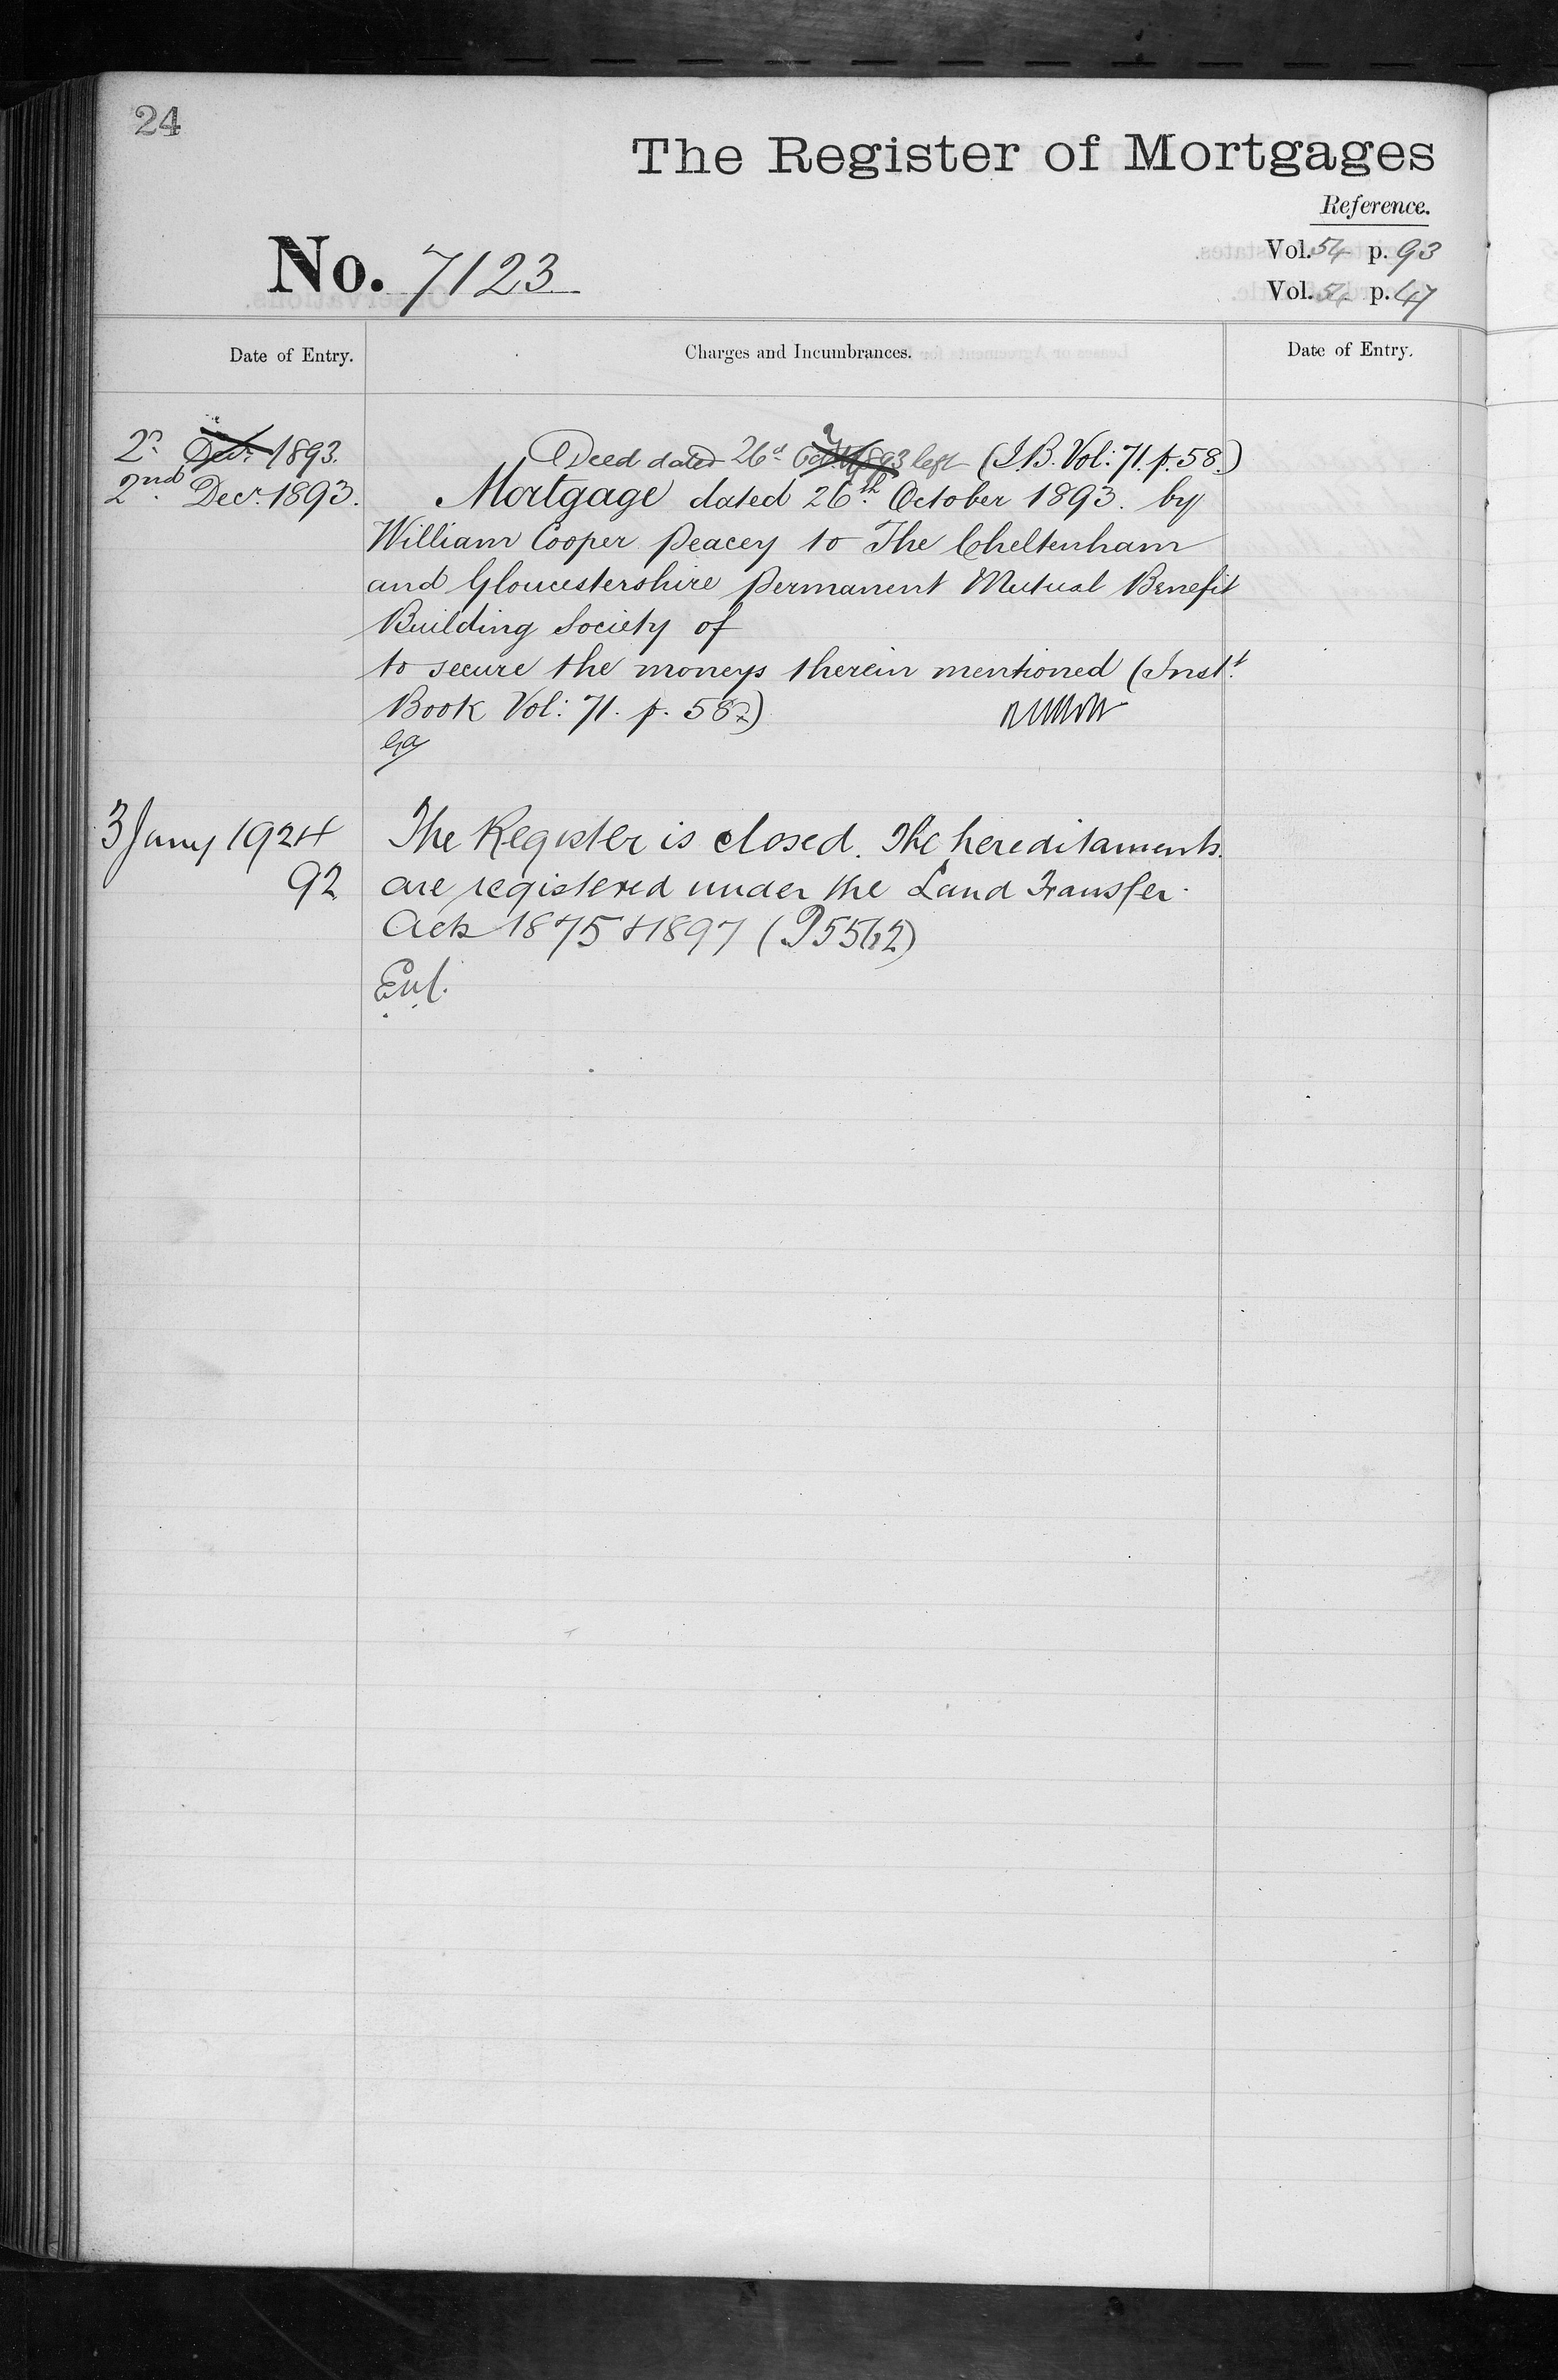 24
The Register of Mortgages
Reference.
No. 7123
Vol. 54 p. 93
Vol. 54 p. 47
Date of Entry.
Charges and Incumbrances.
Date of Entry.
2d Decr. 1893.
Deed dated 26th Octr. 1893 left (I.B. Vol: 71. p. 58.)
2nd Decr. 1893.
Mortgage dated 26th October 1893. by
William Cooper Peacey to The Cheltenham
and Gloucestershire Permanent Mutual Benefit
Building Society of
to secure the moneys therein mentioned (Inst.
Book Vol: 71. p. 58)
3 Jany 1924
The Register is closed. The hereditaments
92
are registered under the Land Transfer
Acts 1875 & 1897 (P5562)